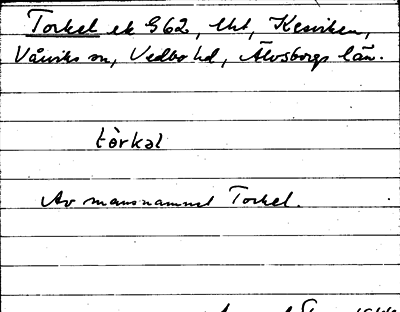 Torkel ek 962, lht, Kesviken,
Vårviks sn, Vedbo hd, Älvsborgs län.
tòrkəl
Av mansnamnet Torkel.